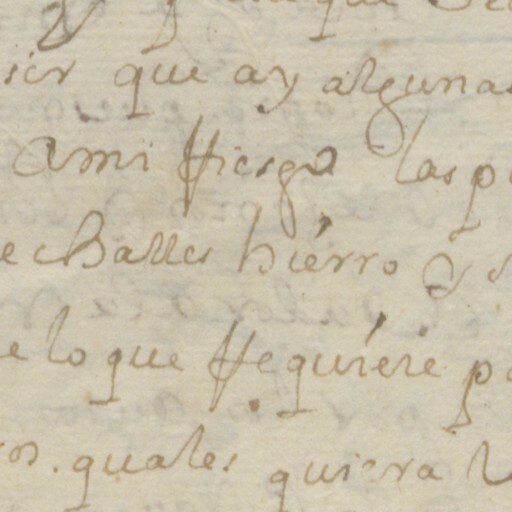 sir que ay algunas
Ami Riesgo las p
echalles hierro y
e lo que Requiere p
os. quales quiera